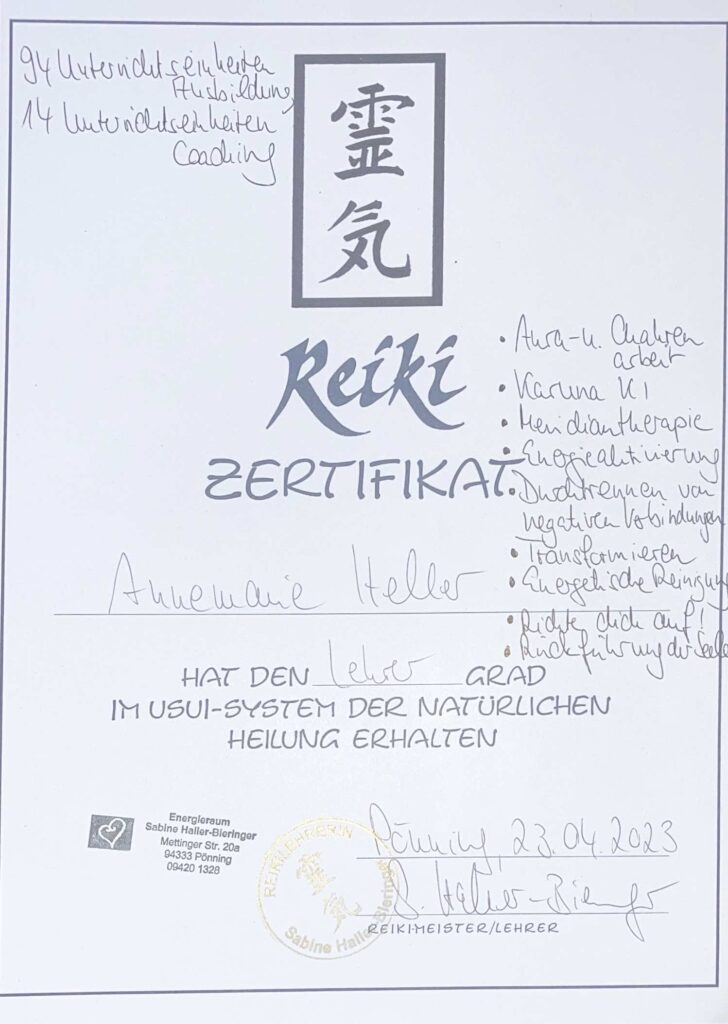 94 Unterrichtseinheiten
Ausbildung
14 Unterrichtseinheiten
Coaching
霊
気
Reiki
ZERTIFIKAT
• Aura- u. Chakren
arbeit
• Karuna KI
• Meridiantherapie
• Energieaktivierung
• Durchtrennen von
negativen Verbindungen
• Transformieren
• Energetische Reinigung
• Richte dich auf!
• Rückführung der Seele
Annemarie Heller
HAT DEN Lehrer GRAD
IM USUI-SYSTEM DER NATÜRLICHEN
HEILUNG ERHALTEN
Energieraum
Sabine Haller-Bieringer
Mettinger Str. 20a
94333 Pönning
09420 1328
REIKILEHRERIN
靈
氣
Sabine Haller-Bieringer
Pönning, 23.04.2023
S. Haller-Bieringer
REIKI-MEISTER/LEHRER